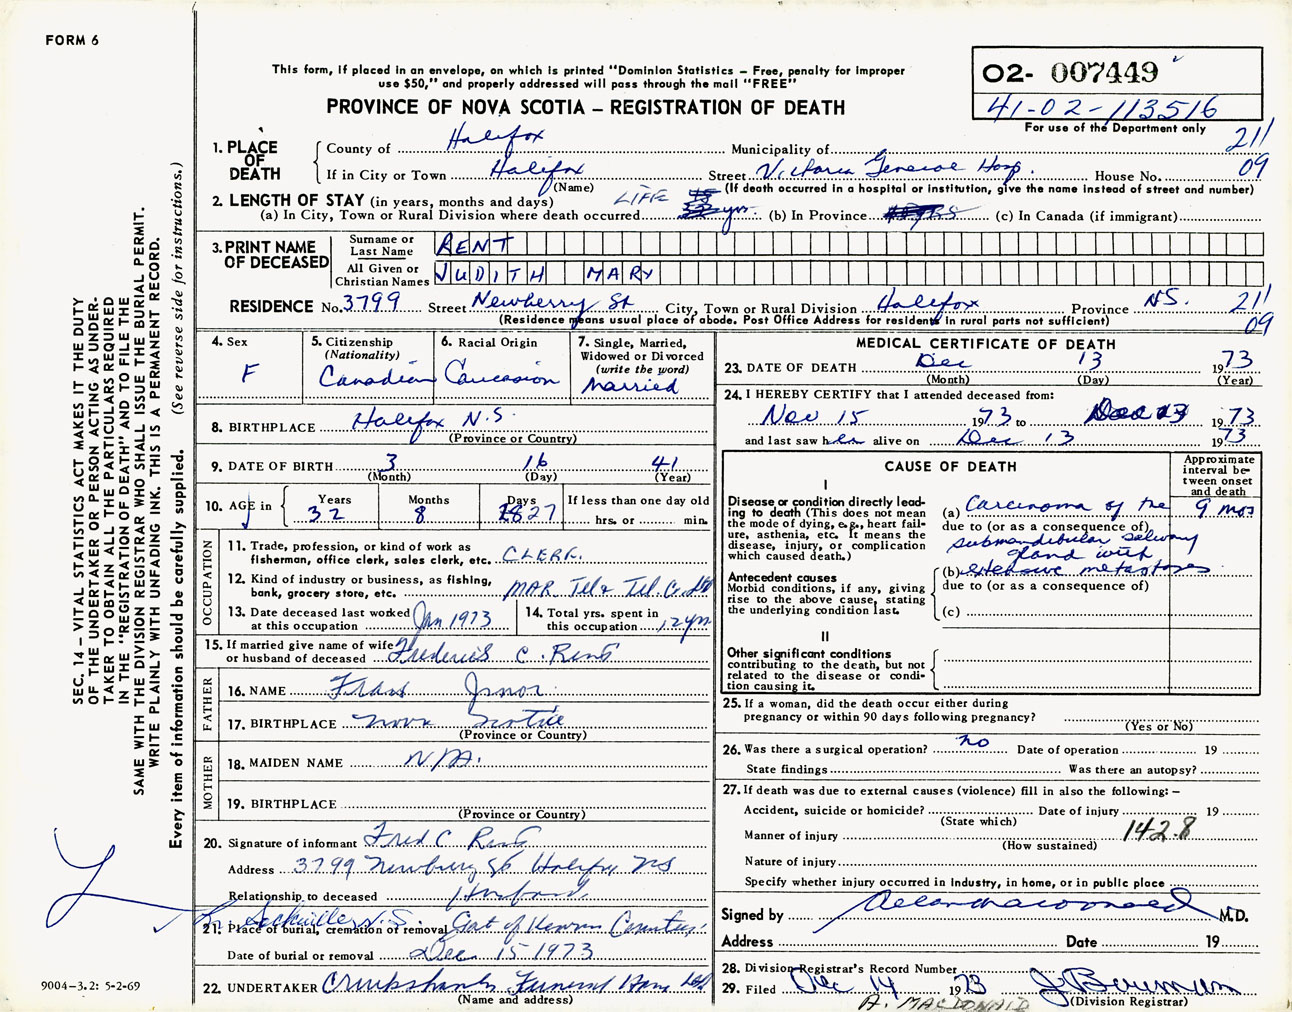 FORM 6
This form, if placed in an envelope, on which is printed "Dominion Statistics – Free, penalty for improper
use $50," and properly addressed will pass through the mail "FREE"
PROVINCE OF NOVA SCOTIA – REGISTRATION OF DEATH
02- 007449
41-02-113516
For use of the Department only
211
09
1. PLACE OF DEATH
County of Halifax Municipality of
If in City or Town Halifax Street Victoria General Hosp. House No.
(Name) (If death occurred in a hospital or institution, give the name instead of street and number)
2. LENGTH OF STAY (in years, months and days) LIFE
(a) In City, Town or Rural Division where death occurred yrs. (b) In Province (c) In Canada (if immigrant)
3. PRINT NAME OF DECEASED
Surname or Last Name RENT
All Given or Christian Names JUDITH MARY
RESIDENCE No. 3799 Street Newberry St City, Town or Rural Division Halifax Province N.S. 211
(Residence means usual place of abode. Post Office Address for residents in rural parts not sufficient) 09
4. Sex
F
5. Citizenship
(Nationality)
Canadian
6. Racial Origin
Caucasion
7. Single, Married,
Widowed or Divorced
(write the word)
Married
8. BIRTHPLACE Halifax N.S.
(Province or Country)
9. DATE OF BIRTH 3 16 41
(Month) (Day) (Year)
10. AGE in Years Months Days If less than one day old
32 8 27 hrs. or min.
OCCUPATION
11. Trade, profession, or kind of work as
fisherman, office clerk, sales clerk, etc. CLERK.
12. Kind of industry or business, as fishing,
bank, grocery store, etc. MAR Tel & Tel. Co Ltd
13. Date deceased last worked
at this occupation Jan 1973
14. Total yrs. spent in
this occupation 12 yrs
15. If married give name of wife
or husband of deceased Frederick C. Rent
FATHER
16. NAME Frank
17. BIRTHPLACE Nova Scotia
(Province or Country)
MOTHER
18. MAIDEN NAME N/A.
19. BIRTHPLACE
(Province or Country)
20. Signature of informant Fred C Rent
Address 3799 Newbury St Halifax NS
Relationship to deceased Husband
Sackville N.S.
21. Place of burial, cremation or removal Gat of Heaven Cemetery
Date of burial or removal Dec 15 1973
22. UNDERTAKER Cruikshanks Funeral Home Ltd
(Name and address)
MEDICAL CERTIFICATE OF DEATH
23. DATE OF DEATH Dec 13 1973
(Month) (Day) (Year)
24. I HEREBY CERTIFY that I attended deceased from:
Nov 15 1973 to Dec 13 1973
and last saw her alive on Dec 13 1973
CAUSE OF DEATH
Approximate interval between onset and death
I
Disease or condition directly leading to death (This does not mean the mode of dying, e.g., heart failure, asthenia, etc. It means the disease, injury, or complication which caused death.)
(a) Carcinoma of the 9 mos
due to (or as a consequence of)
submandibular salivary
gland with
Antecedent causes
Morbid conditions, if any, giving rise to the above cause, stating the underlying condition last.
(b) extensive metastases
due to (or as a consequence of)
(c)
II
Other significant conditions
contributing to the death, but not related to the disease or condition causing it.
25. If a woman, did the death occur either during
pregnancy or within 90 days following pregnancy?
(Yes or No)
26. Was there a surgical operation? no Date of operation 19
State findings Was there an autopsy?
27. If death was due to external causes (violence) fill in also the following: –
Accident, suicide or homicide? Date of injury 19
(State which)
Manner of injury 142.8
(How sustained)
Nature of injury
Specify whether injury occurred in industry, in home, or in public place
Signed by M.D.
Address Date 19
28. Division Registrar's Record Number
29. Filed Dec 14 1973 J Bowman
(Division Registrar)
A. MACDONALD
SEC. 14 – VITAL STATISTICS ACT MAKES IT THE DUTY
OF THE UNDERTAKER OR PERSON ACTING AS UNDER-
TAKER TO OBTAIN ALL THE PARTICULARS REQUIRED
IN THE "REGISTRATION OF DEATH" AND TO FILE THE
SAME WITH THE DIVISION REGISTRAR WHO SHALL ISSUE THE BURIAL PERMIT.
WRITE PLAINLY WITH UNFADING INK. THIS IS A PERMANENT RECORD.
Every item of information should be carefully supplied. (See reverse side for instructions.)
9004-3.2: 5-2-69